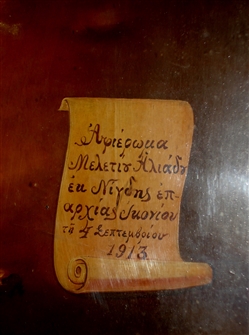 Ἀφιέρωμα
Μελετίου Ἠλιάδου
ἐκ Νίγδης ἐπ-
αρχίας Ἰκονίου
τῇ 4 Σεπτεμβρίου
1913